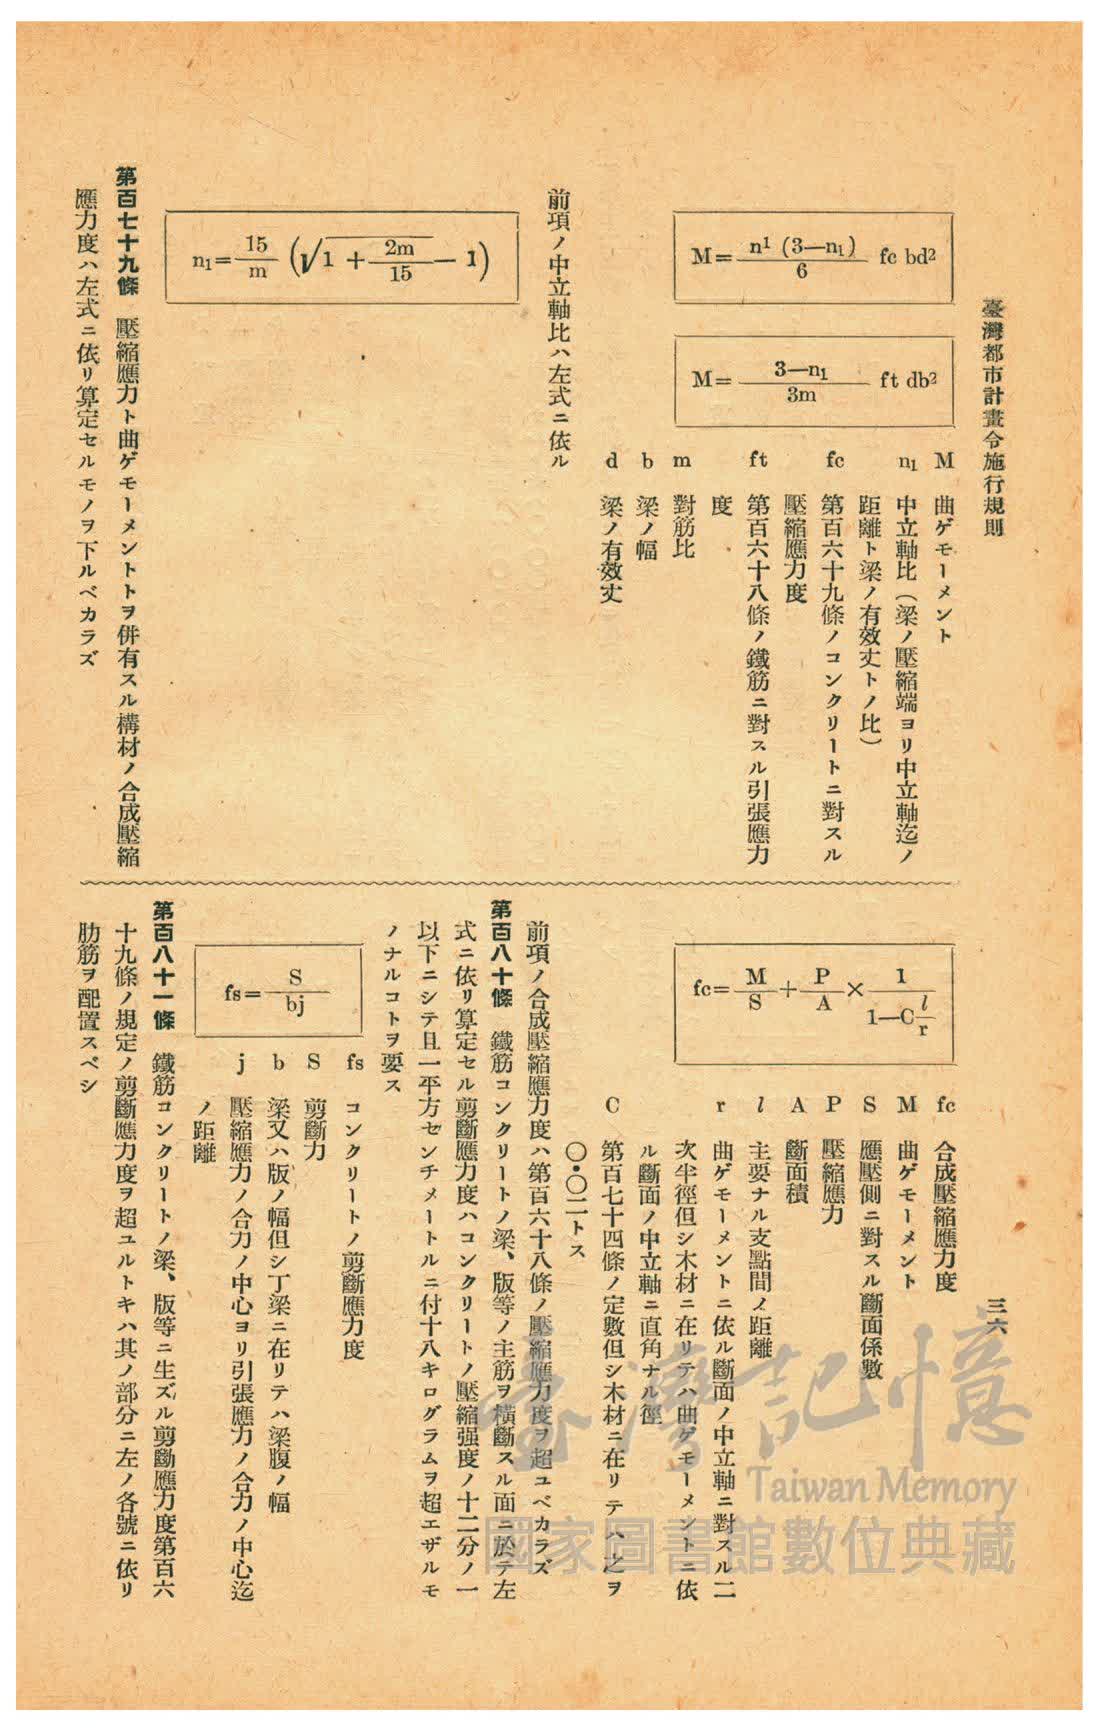 臺灣都市計畫令施行規則
三六
M= n¹ (3—n₁) / 6 fc bd²
M= 3—n₁ / 3m ft db²
M 曲ゲモーメント
n₁ 中立軸比(梁ノ壓縮端ヨリ中立軸迄ノ
距離ト梁ノ有效丈トノ比)
fc 第百六十九條ノコンクリートニ對スル
壓縮應力度
ft 第百六十八條ノ鐵筋ニ對スル引張應力
度
m 對筋比
b 梁ノ幅
d 梁ノ有效丈
前項ノ中立軸比ハ左式ニ依ル
n₁= 15/m (√1 + 2m/15 — 1)
第百七十九條 壓縮應力ト曲ゲモーメントトヲ併有スル構材ノ合成壓縮
應力度ハ左式ニ依リ算定セルモノヲ下ルベカラズ
fc= M/S + P/A × 1/(1—C l/r)
fc 合成壓縮應力度
M 曲ゲモーメント
S 應壓側ニ對スル斷面係數
P 壓縮應力
A 斷面積
l 主要ナル支點間ノ距離
r 曲ゲモーメントニ依ル斷面ノ中立軸ニ對スル二
次半徑但シ木材ニ在リテハ曲ゲモーメントニ依
ル斷面ノ中立軸ニ直角ナル徑
C 第百七十四條ノ定數但シ木材ニ在リテハ之ヲ
〇・〇二トス
前項ノ合成壓縮應力度ハ第百六十八條ノ壓縮應力度ヲ超ユベカラズ
第百八十條 鐵筋コンクリートノ梁、版等ノ主筋ヲ橫斷スル面ニ於テ左
式ニ依リ算定セル剪斷應力度ハコンクリートノ壓縮强度ノ十二分ノ一
以下ニシテ且一平方センチメートルニ付十八キログラムヲ超エザルモ
ノナルコトヲ要ス
fs= S/bj
fs コンクリートノ剪斷應力度
S 剪斷力
b 梁又ハ版ノ幅但シ丁梁ニ在リテハ梁腹ノ幅
j 壓縮應力ノ合力ノ中心ヨリ引張應力ノ合力ノ中心迄
ノ距離
第百八十一條 鐵筋コンクリートノ梁、版等ニ生ズル剪斷應力度第百六
十九條ノ規定ノ剪斷應力度ヲ超ユルトキハ其ノ部分ニ左ノ各號ニ依リ
肋筋ヲ配置スベシ
臺灣記憶
Taiwan Memory
國家圖書館數位典藏